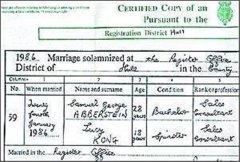 CERTIFIED COPY of an
Pursuant to the
Registration District Hull
1986. Marriage solemnized at the Register Office
District of Hull in the County
Columns:- 1 2 3 4 5
No. When married Name and surname Age Condition Rank or profession
59 Twenty fourth January 1986 Samuel George ABBERSTEIN 22 years Bachelor Sales Consultant
Lucy KONG 18 years Spinster Sales Consultant
Married in the Register Office